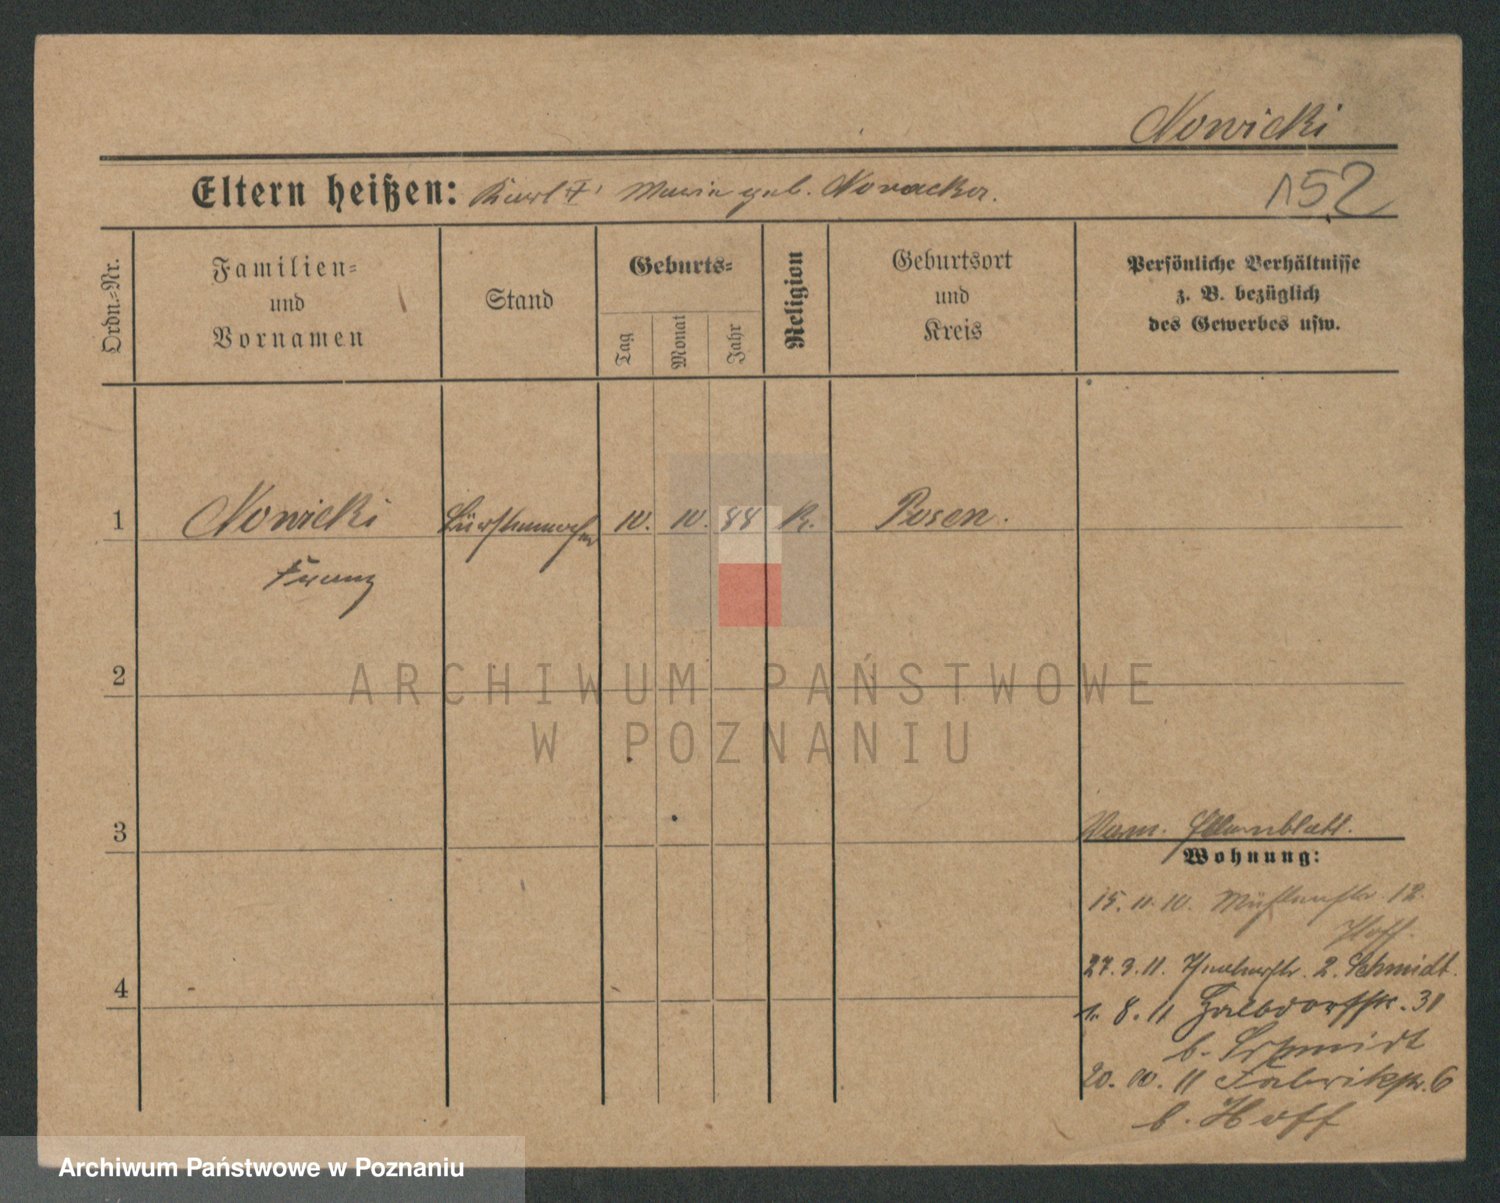 Nowicki
Eltern heißen: Karl † Maria geb. Novacka.
152
Ordn.-Nr.
Familien-
und
Vornamen
Stand
Geburts-
Tag
Monat
Jahr
Religion
Geburtsort
und
Kreis
Persönliche Verhältnisse
z. B. bezüglich
des Gewerbes usw.
1 Nowicki Bürstenmacher 10. 10. 88 K. Posen.
Franz
2
ARCHIWUM PAŃSTWOWE
W POZNANIU
3
Stammblatt.
Wohnung:
15. 11. 10. Mühlenstr. 12.
Hoff.
27. 3. 11. 2. Schmidt.
4
1. 8. 11 Halbdorfstr. 31
b. Schmidt
20. 10. 11 Fabrikstr. 6
b. Hoff
Archiwum Państwowe w Poznaniu